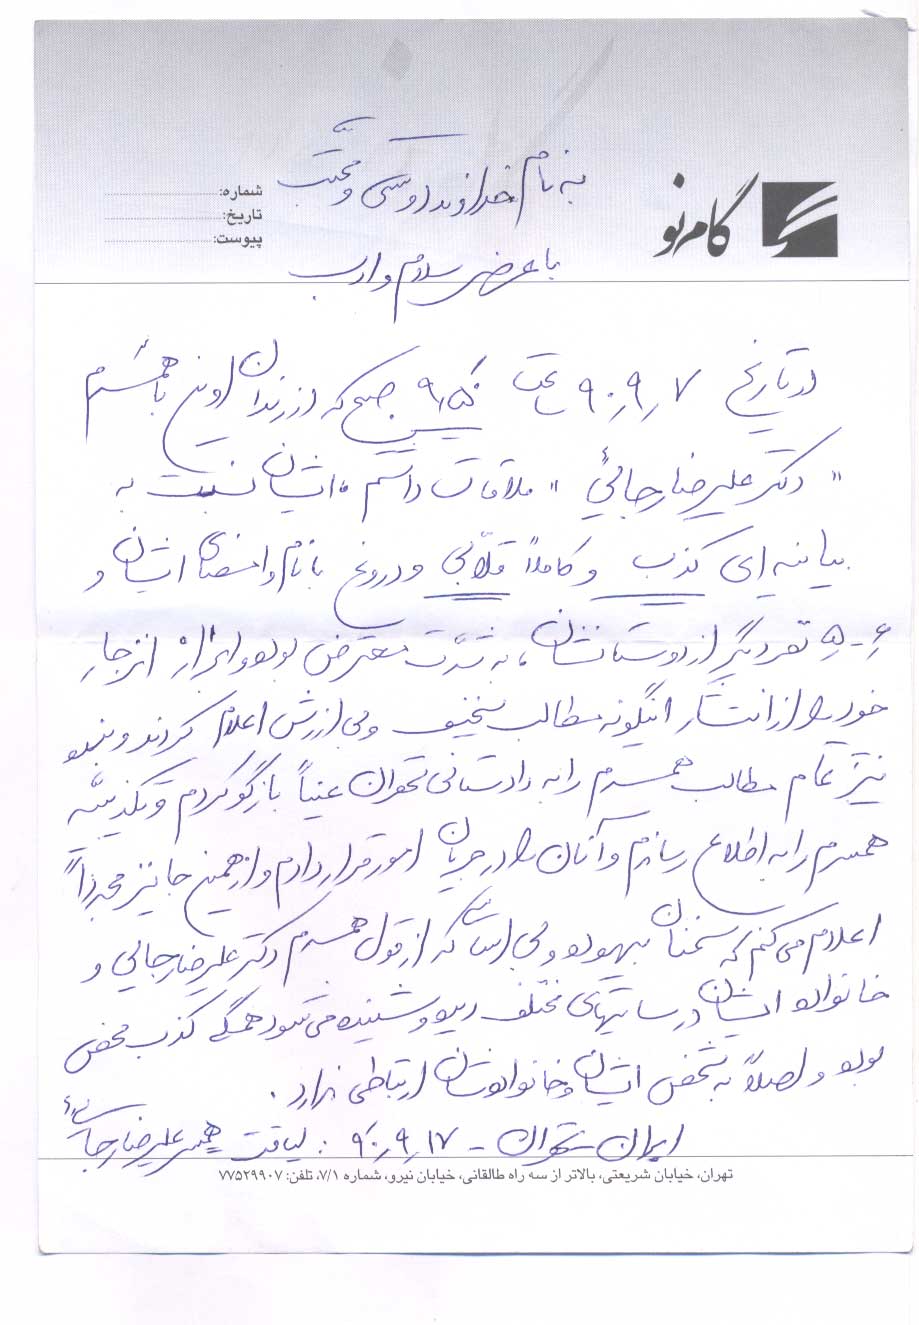 به نام خداوند دوستی و محبت
گام نو
شماره:
تاریخ:
پیوست:
با عرض سلام و ادب
در تاریخ ۹۰٫۹٫۷ ساعت ۹٫۵۰ صبح که از زندان اوین با همسرم
"دکتر علیرضا رجائی" ملاقات داشتم، ایشان نسبت به
بیانیه‌ای کذب و کاملاً قلّابی و دروغ با نام و امضای ایشان و
۵-۶ نفر دیگر از دوستانشان، به شدت معترض بوده و ابراز انزجار
خود را از انتشار اینگونه مطالب سخیف و بی ارزش اعلام کردند و بنده
نیز تمام مطالب همسرم را به دادستانی تهران عیناً بازگو کردم و تکذیبیّه
همسرم را به اطلاع رساندم و آنان را در جریان امور قرار دادم و از همین جا نیز مجدداً
اعلام می کنم که سخنان بیهوده و بی اساسی که از قول همسرم دکتر علیرضا رجایی و
خانواده ایشان در سایتهای مختلف دیده و شنیده می شود همگی کذب محض
بوده و اصلاً به شخص ایشان و خانواده‌شان ارتباطی ندارد.
ایران - تهران - ۹۰٫۹٫۱۷ . لیاقت همسر علیرضا رجائی
تهران، خیابان شریعتی، بالاتر از سه راه طالقانی، خیابان نیرو، شماره ۷/۱، تلفن: ۷۷۵۲۹۹۰۷